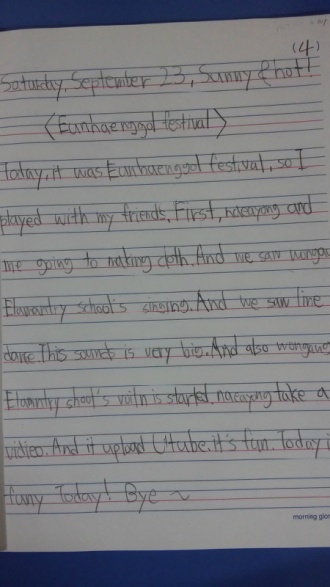 (4)
Saturday, September 23, Sunny & hot!
<Eunhaenggol festival>
Today, it was Eunhaenggol festival, so I
played with my friends. First, nacayong and
me going to making cloth. And we saw wongau
Elawantry school's singing. And we saw line
dance. This sounds is very big. And also wongaug
Elawntry shool's is started. nacayong take a
vidieo. And it upload Utube. it's fun. Today i
funy Today! Bye ~
morning glor